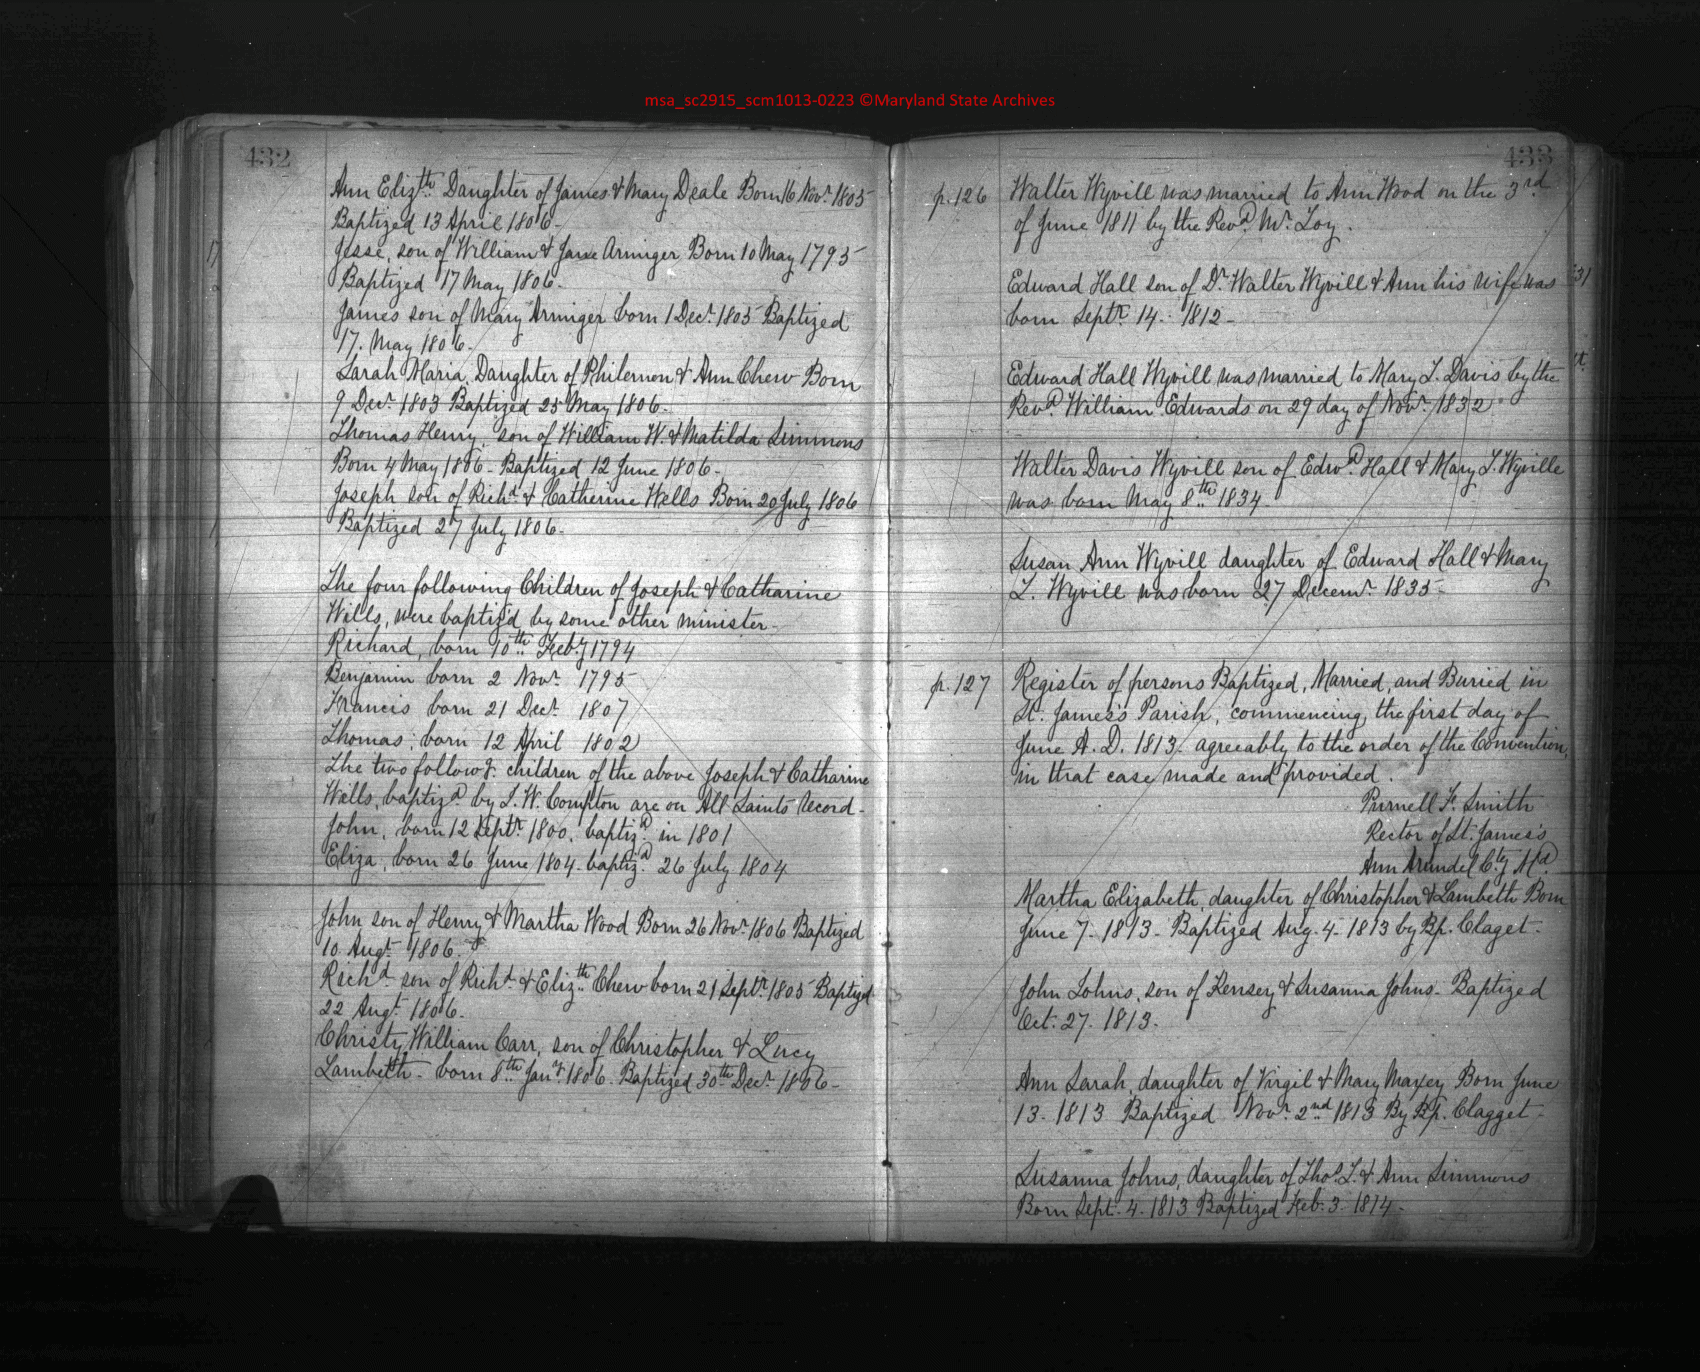 msa_sc2915_scm1013-0223 ©Maryland State Archives
432
Ann Elizth Daughter of James & Mary Deale Born 16 Novr 1805
Baptized 13 April 1806-
Jesse, son of William & Jane Arminger Born 10 May 1795
Baptized 17 May 1806-
James son of Mary Arminger born 1 Decr 1805 Baptized
17. May 1806-
Sarah Maria, Daughter of Philemon & Ann Chew Born
9 Decr 1803 Baptized 25 May 1806-
Thomas Henry, son of William W. & Matilda Simmons
Born 4 May 1806- Baptized 12 June 1806-
Joseph son of Richd & Catherine Wells Born 20 July 1806
Baptized 27 July 1806-
The four following Children of Joseph & Catharine
Wells, were baptiz'd by some other minister-
Richard, born 10th Feby 1794
Benjamin born 2 Novr 1795
Francis born 21 Decr 1807
Thomas, born 12 April 1802
The two followg. children of the above Joseph & Catharine
Wells, baptizd by T. W. Compton are on All Saints Record-
John, born 12 Septr 1800, baptizd in 1801
Eliza, born 26 June 1804- baptizd 26 July 1804
John son of Henry & Martha Wood Born 26 Novr 1806 Baptized
10 Augt 1806-
Richd son of Richd & Elizth Chew born 21 Septr 1805 Baptizd
22 Augt 1806-
Christy William Carr, son of Christopher & Lucy
Lambeth- born 8th Jany 1806. Baptized 30th Decr 1806-
433
p. 126 Walter Wyvill was married to Ann Wood on the 3rd
of June 1811 by the Revd Mr Loy.
Edward Hall son of Dr Walter Wyvill & Ann his wife was
born Septr 14- 1812-
Edward Hall Wyvill was married to Mary T. Davis by the
Revd William Edwards on 29 day of Novr 1832
Walter Davis Wyvill son of Edwd Hall & Mary T. Wyville
was born May 8th 1834-
Susan Ann Wyvill daughter of Edward Hall & Mary
T. Wyvill was born 27 Decemr 1835-
p. 127 Register of persons Baptized, Married, and Buried in
St. James's Parish, commencing the first day of
June A. D. 1813- agreeably to the order of the Convention,
in that case made and provided.
Purnell F. Smith
Rector of St. James's
Ann Arundel Cty Md.
Martha Elizabeth, daughter of Christopher & Lambeth Born
June 7- 1813- Baptized Aug- 4- 1813 by Bp. Claget-
John Johns, son of Kensey & Susanna Johns- Baptized
Oct. 27. 1813-
Ann Sarah, daughter of Virgil & Mary Maxey Born June
13- 1813 Baptized Novr 2nd 1813 By Bp. Clagget-
Susanna Johns, daughter of Thos T. & Ann Simmons
Born Sept. 4- 1813 Baptized Feb- 3- 1814-